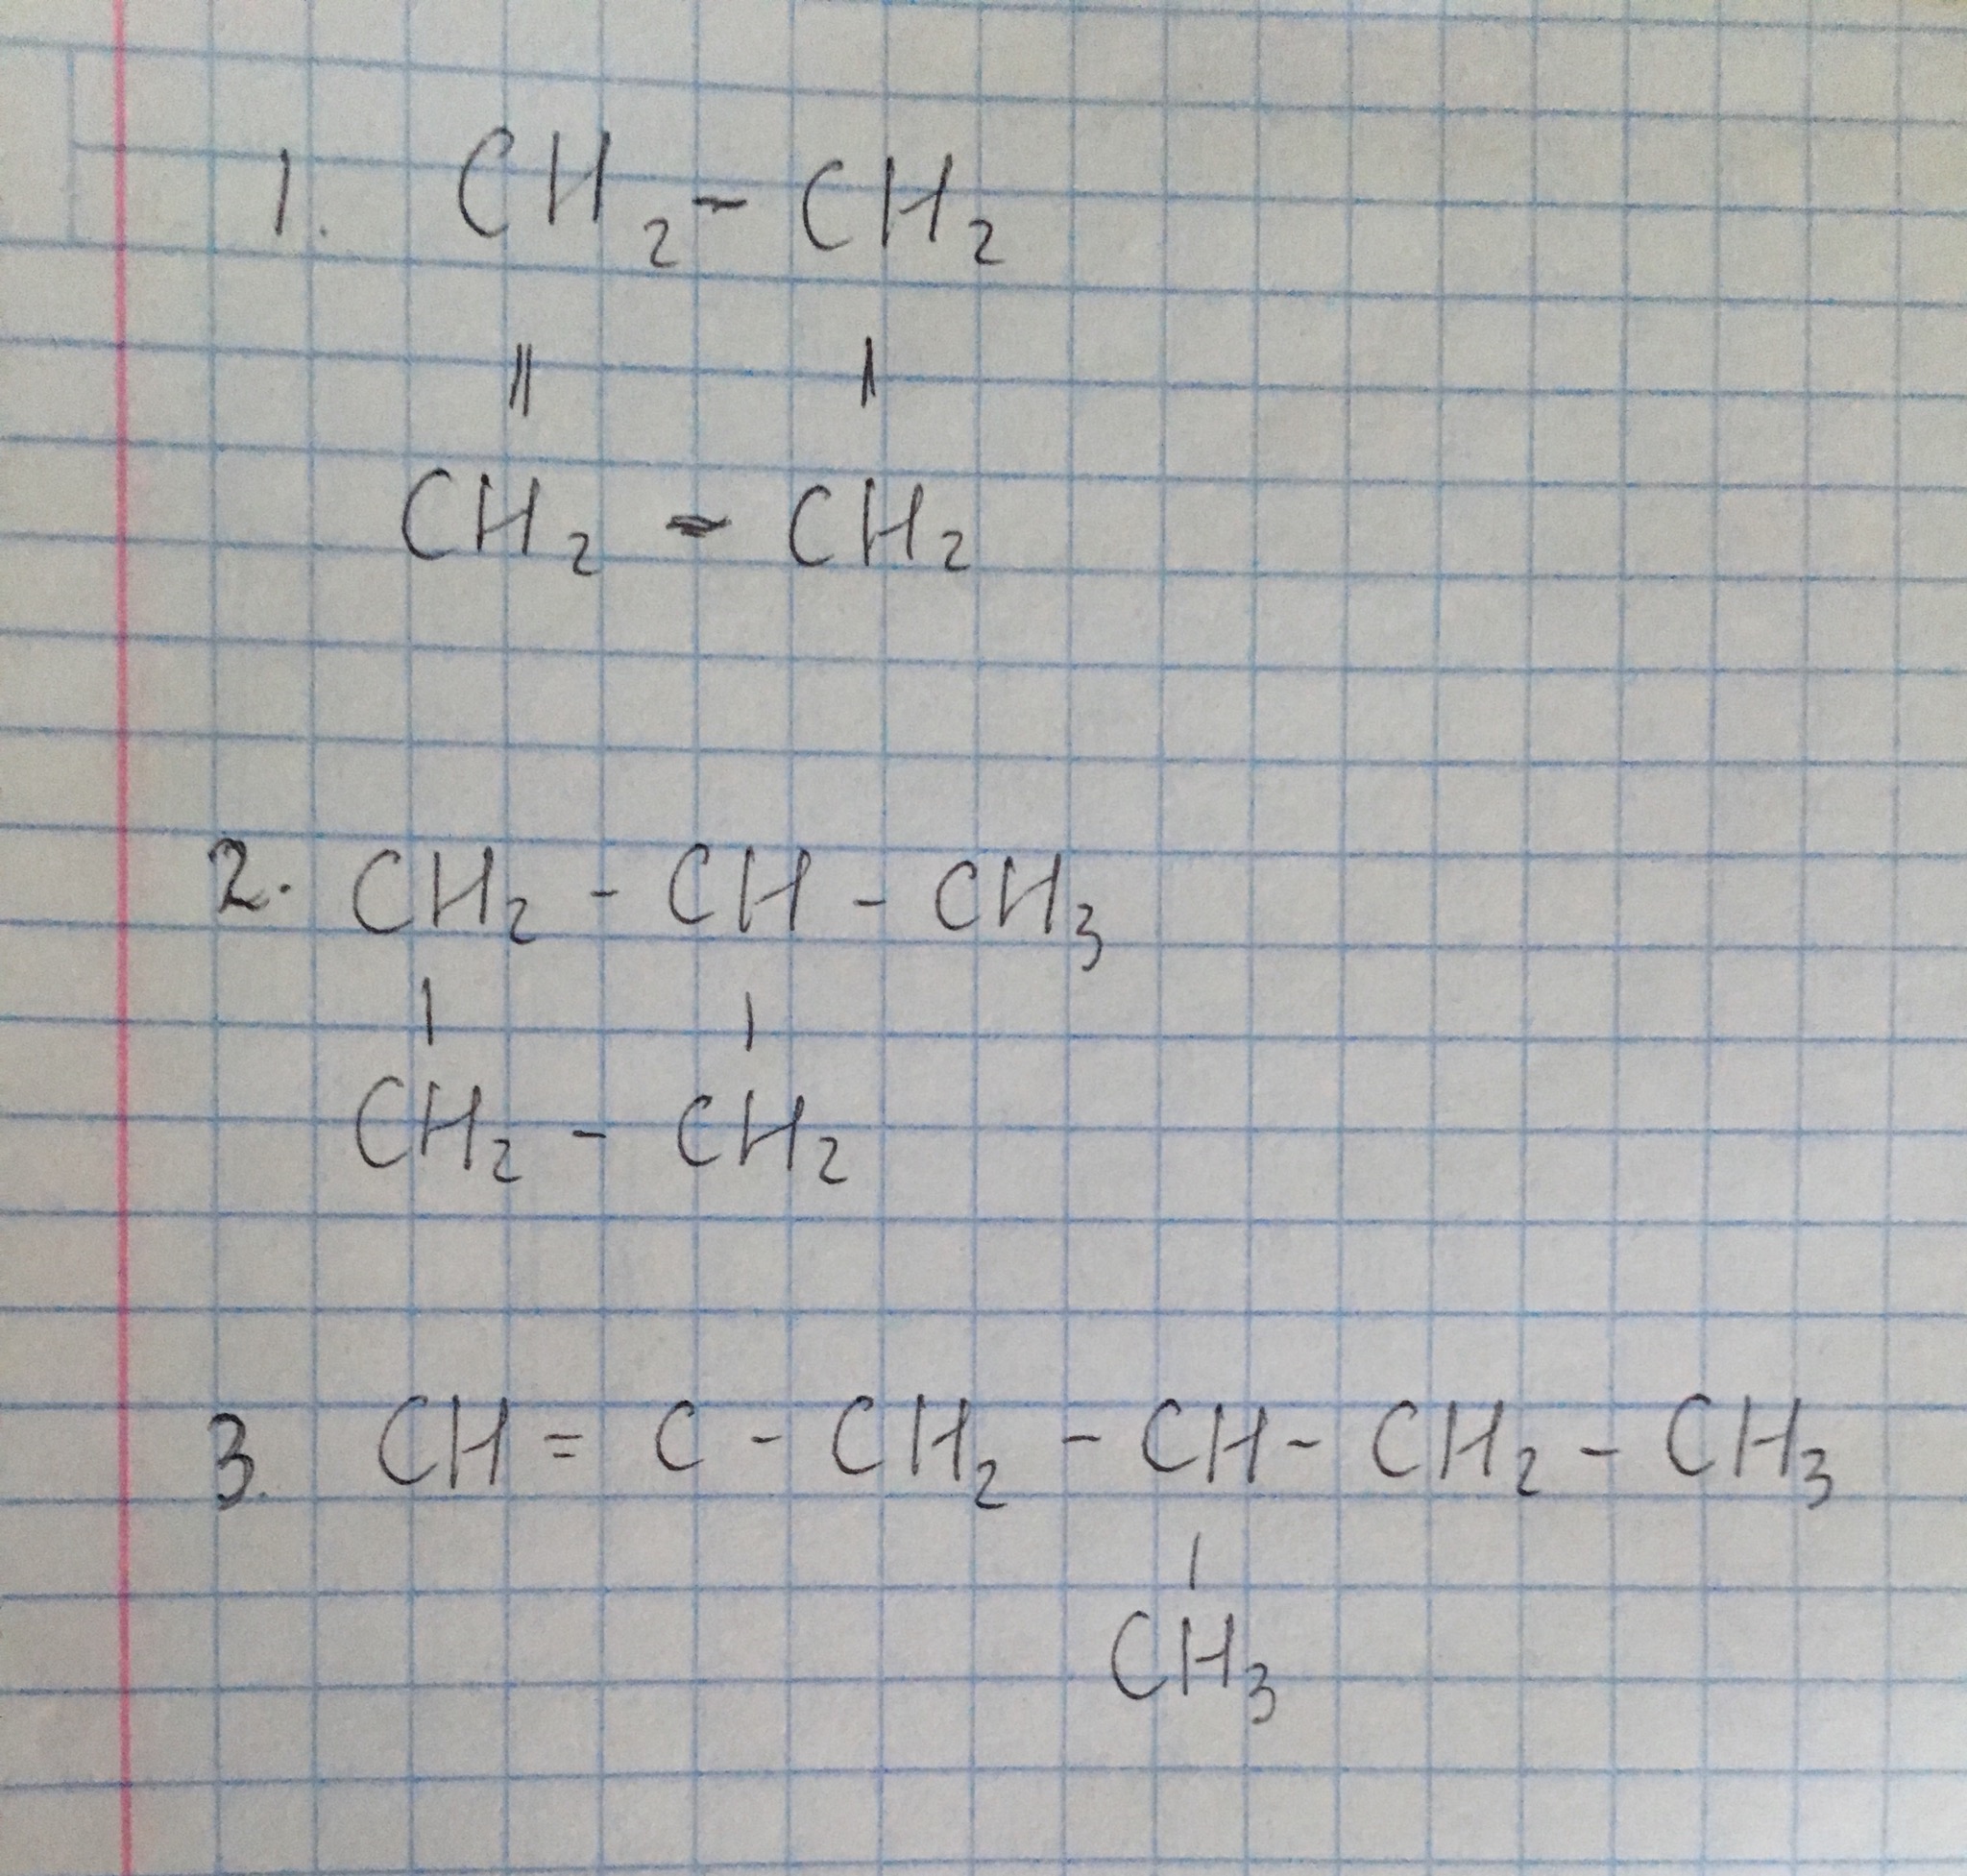 1. CH₂ - CH₂
|| |
CH₂ - CH₂
2. CH₂ - CH - CH₃
| |
CH₂ - CH₂
3. CH = C - CH₂ - CH - CH₂ - CH₃
|
CH₃